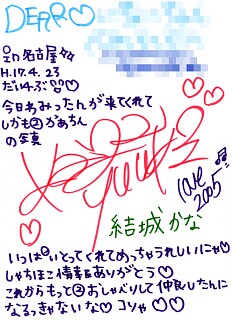 DEAR♡
in 名古屋
H.17.4.23
だいすぶ♡♡
今日わみったんが来てくれて
しかも②がおちん
の写真
love 2005
結城かな
いっぱいとってくれてめっちゃうれしいにゃ♡
しゃちほこ情報もありがとう♡
これからもっと②おしゃべりして仲良したんに
なるっきゃないな♡コリャ♡♡